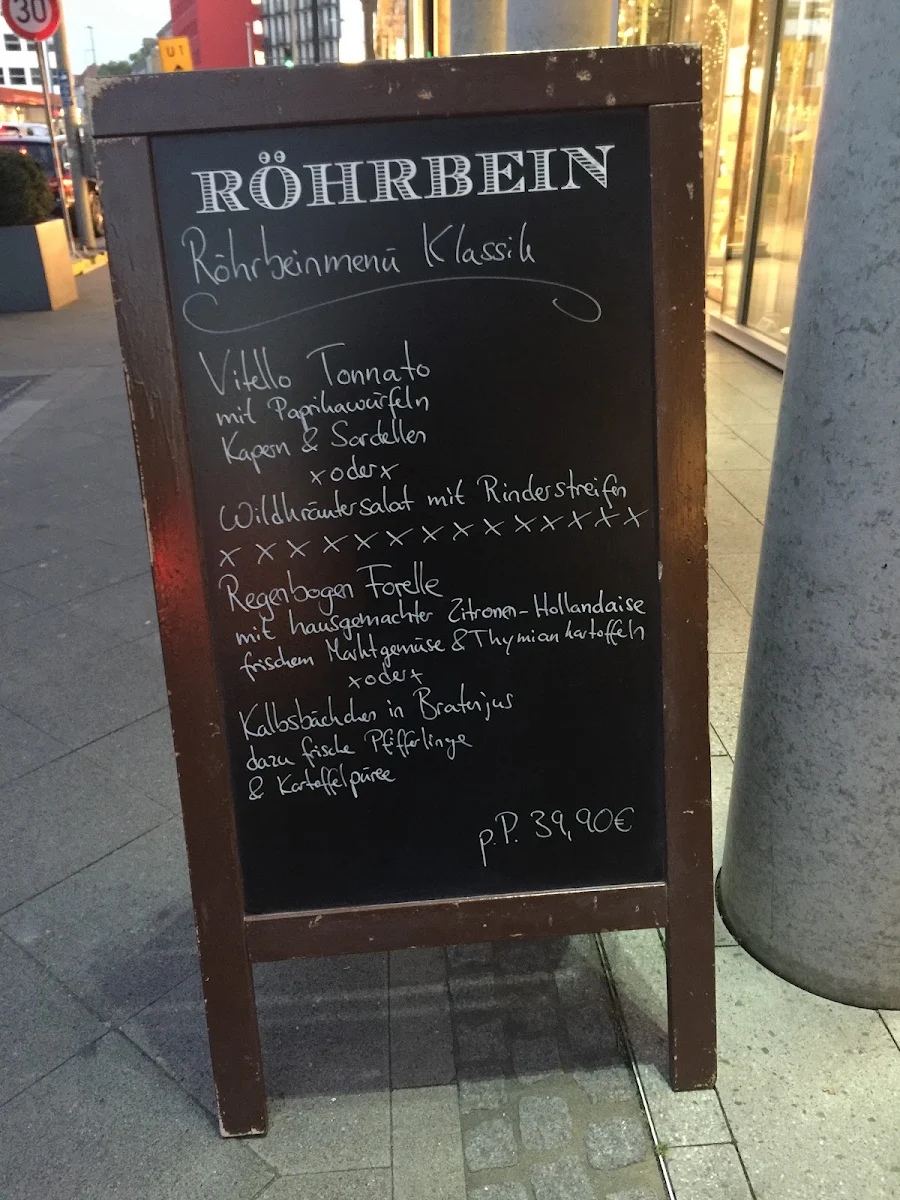 30
U1
RÖHRBEIN
Röhrbeinmenü Klassik
Vitello Tonnato
mit Paprikawürfeln
Kapern & Sardellen
x oder x
Wildkräutersalat mit Rinderstreifen
x x x x x x x x x x x x x x
Regenbogen Forelle
mit hausgemachter Zitronen-Hollandaise
frischem Marktgemüse & Thymiankartoffeln
x oder x
Kalbsbäckchen in Bratenjus
dazu frische Pfifferlinge
& Kartoffelpüree
p.P. 39,90€